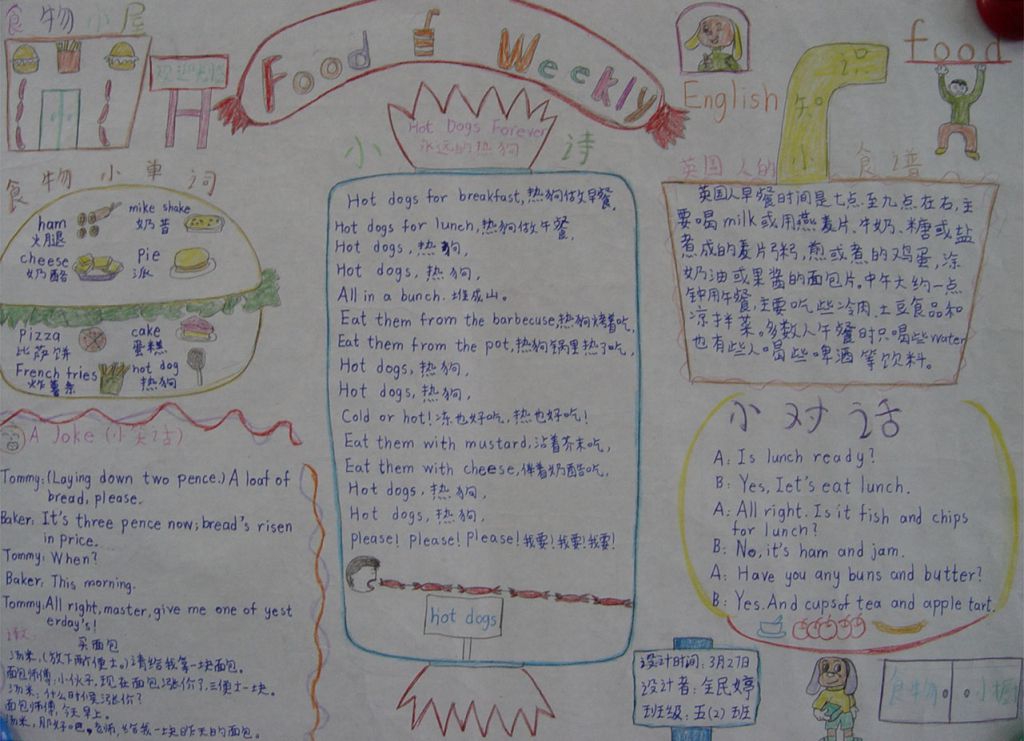 食物小屋
欢迎光临
Food Weekly
English
food
小知识
Hot Dogs Forever
永远的热狗
小诗
英国人的食谱
食物小单词
ham
火腿
mike shake
奶昔
cheese
奶酪
Pie
派
pizza
比萨饼
cake
蛋糕
French fries
炸薯条
hot dog
热狗
Hot dogs for breakfast,热狗做早餐,
Hot dogs for lunch,热狗做午餐,
Hot dogs,热狗,
Hot dogs,热狗,
All in a bunch.堆成山。
Eat them from the barbecuse,热狗烤着吃,
Eat them from the pot,热狗锅里热了吃,
Hot dogs,热狗,
Hot dogs,热狗,
Cold or hot!冻也好吃,热也好吃!
Eat them with mustard,沾着芥末吃,
Eat them with cheese,伴着奶酪吃,
Hot dogs,热狗,
Hot dogs,热狗,
please! please! Please!我要!我要!我要!
hot dogs
英国人早餐时间是七点至九点左右,主
要喝milk或用燕麦片、牛奶、糖或盐
煮成的麦片粥,煎或煮的鸡蛋,涂
奶油或果酱的面包片。中午大约一点
钟用午餐,主要吃些冷肉、土豆食品和
凉拌菜。多数人午餐时只喝些water
也有些人喝些啤酒等饮料。
A Joke (小笑话)
Tommy:(Laying down two pence.) A loaf of
bread, please.
Baker: It's three pence now; bread's risen
in price.
Tommy: When?
Baker: This morning.
Tommy: All right, master, give me one of yest
erday's!
买面包
汤米:(放下两便士。)请给我拿一块面包。
面包师傅:小伙子,现在面包涨价了,三便士一块。
汤米:什么时候涨价?
面包师傅:今天早上。
汤米:那好吧,老师,给我一块昨天的面包。
小对话
A: Is lunch ready?
B: Yes, Iet's eat lunch.
A: All right. Is it fish and chips
for lunch?
B: No, it's ham and jam.
A: Have you any buns and butter?
B: Yes. And cups of tea and apple tart.
设计时间:3月27日
设计者:全民婷
班级:五(2)班
食物小橱